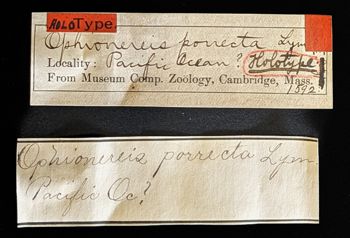 HOLOTYPE
Ophionereis porrecta Lym.
Locality: Pacific Ocean? Holotype
From Museum Comp. Zoölogy, Cambridge, Mass.
1892
Ophionereis porrecta Lym.
Pacific Oc?